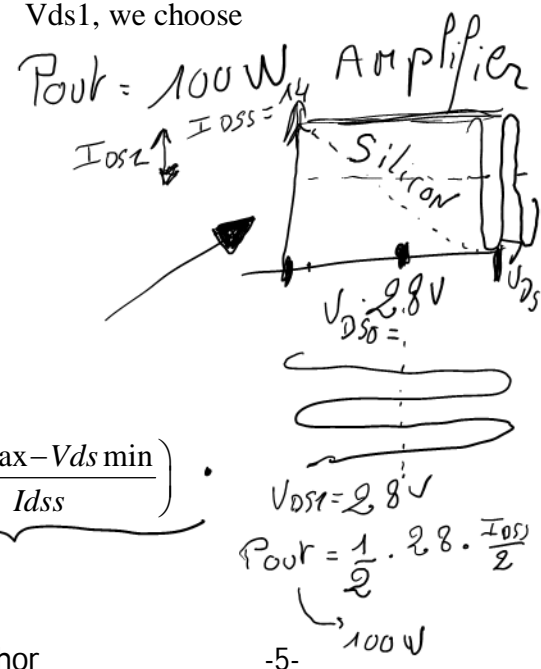 Vds1, we choose
Pout = 100 W Amplifier
IDS1 IDSS = 14
Silicon
VDS
VDS0 = 28V
ax−Vds min
Idss
VDS1 = 28V
Pout = 1/2 . 28 . IDSS/2
100 W
hor -5-